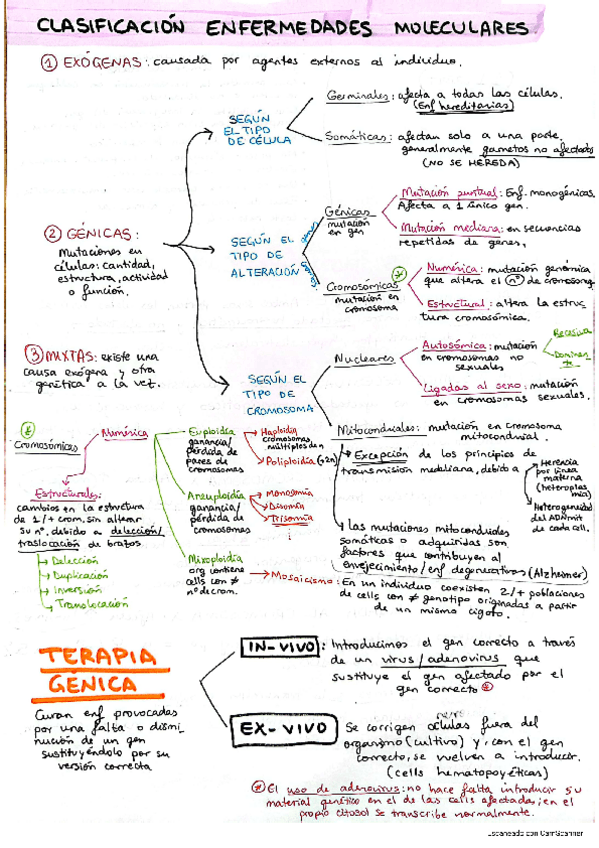 CLASIFICACIÓN ENFERMEDADES MOLECULARES
① EXÓGENAS: causada por agentes externos al individuo.
SEGÚN
EL TIPO
DE CÉLULA
Germinales: afecta a todas las células.
(Enf hereditarias)
Somáticas: afectan solo a una parte,
generalmente gametos no afectados
(NO SE HEREDA)
② GÉNICAS:
Mutaciones en
células: cantidad,
estructura, actividad
o función.
SEGÚN EL
TIPO DE
ALTERACIÓN
Génicas
mutación
en gen
Mutación puntual: Enf. monogénicas.
Afecta a 1 único gen.
Mutación mediana: en secuencias
repetidas de genes.
Cromosómicas
mutación en
cromosoma
Numérica: mutación genómica
que altera el nº de cromosomas
Estructural: altera la estruc
tura cromosómica.
③ MIXTAS: existe una
causa exógena y otra
genética a la vez.
SEGÚN EL
TIPO DE
CROMOSOMA
Nucleares
Autosómica: mutación
en cromosomas no
sexuales
Recesiva
Dominan
te
Ligadas al sexo: mutación
en cromosomas sexuales.
Mitocondriales: mutación en cromosoma
mitocondrial.
Excepción de los principios de
transmisión mendeliana, debido a
Herencia
por línea
materna
(heteroplas
mia)
Heterogeneidad
del ADNmit
de cada cell.
las mutaciones mitocondriales
somáticas o adquiridas son
factores que contribuyen al
envejecimiento/enf degenerativas (Alzheimer)
Cromosómicas
Numérica
Euploidía
ganancia/
pérdida de
pares de
cromosomas
Haploidía
cromosomas
múltiplos de n
Poliploidía (+2n)
Aneuploidía
ganancia/
pérdida de
cromosomas
Monosomía
Disomía
Trisomía
Mixoploidía
org contiene
cells con ≠
nº de crom.
Mosaicismo: En un individuo coexisten 2/+ poblaciones
de cells con ≠ genotipo originadas a partir
de un mismo cigoto.
Estructurales:
cambios en la estructura
de 1/+ crom, sin alterar
su nº, debido a delección/
traslocación de brazos
Delección
Duplicación
Inversión
Translocación
TERAPIA
GÉNICA
Curan enf provocadas
por una falta o dismi
nución de un gen
sustituyéndolo por su
versión correcta
IN-VIVO: Introducimos el gen correcto a través
de un virus/adenovirus que
sustituye el gen afectado por el
gen correcto
EX-VIVO Se corrigen células fuera del
organismo (cultivo) y, con el gen
correcto, se vuelven a introducir.
(cells hematopoyéticas)
El uso de adenovirus: no hace falta introducir su
material genético en el de las cells afectadas; en el
propio citosol se transcribe normalmente.
Escaneado con CamScanner